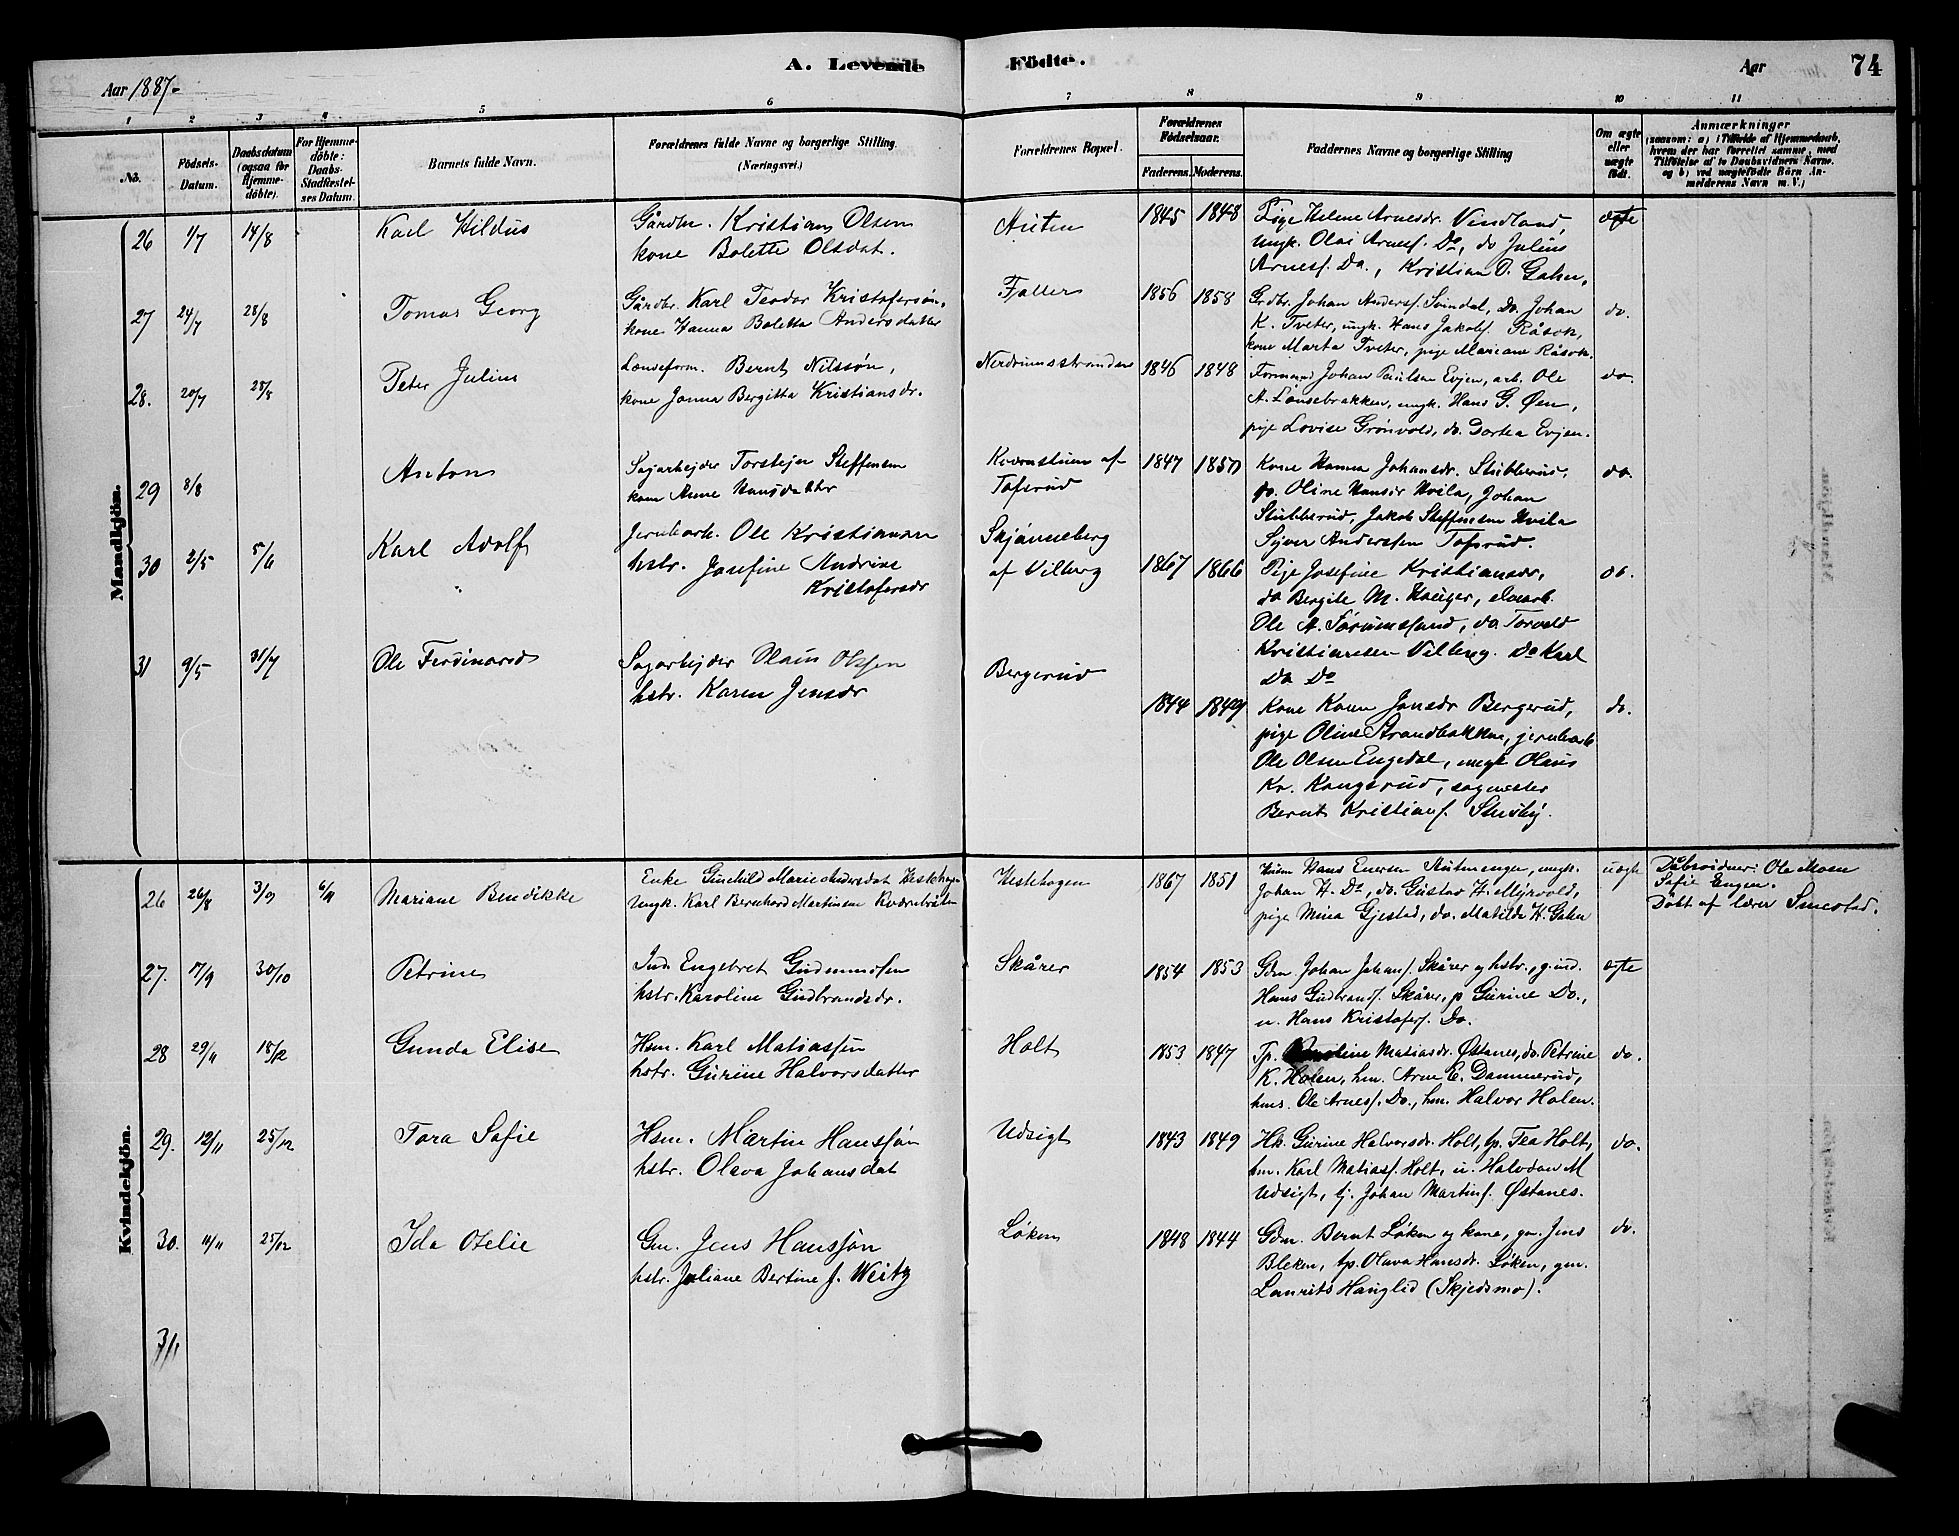 A. Levende Födte.
Aar 1887.
Aar
74
1 2 3 4 5 6 7 8 9 10 11
No.
Födsels-Datum.
Daabsdatum (ogsaa for Hjemme-döbte).
For Hjemme-döbte: Daabs-Stadfæstel-ses Datum.
Barnets fulde Navn.
Forældrenes fulde Navne og borgerlige Stilling. (Næringsvei.)
Forældrenes Bopæl.
Forældrenes Födselsaar.
Faderens. Moderens.
Faddernes Navne og borgerlige Stilling
Om ægte eller uægte födt.
Anmærkninger
(saasom: a) i Tilfælde af Hjemmedaab, hvem der har forrettet samme, med Tilföielse af to Daabsvidners Navne, og b) ved uægtefödte Börn An-melderens Navn m. V.)
Mandkjön.
26 1/7 14/8 Karl Hildus
Gårdbr. Kristian Olsen
kone Bolette Olsdat.
1845 1848
Pige Helene Arnesdr. Vindland,
ungk. Olai Arnesf. Do, do Julius
Arnesf. Do., Kristian O. Gahn,
ægte
27 24/7 28/8 Tomas Georg
Gårdbr. Karl Teodor Kristofersøn,
kone Hanna Boletta Andersdatter
Faller
1856 1858
Grdbr. Johan Andersf. Svindal, Do. Johan
K. Tveter, ungk. Hans Jakobf. Råsok,
kone Marta Tveter, pige Mariane Råsok.
do.
28. 20/7 28/8 Peter Julius
Lænseform. Bernt Nilssøn,
kone Janna Bergitta Kristiansdr.
Nerdrumsstranden
1846 1848
Formand Johan Paulsen Evjen, arb. Ole
A. Lænsebrakken, ungk. Hans G. Øen,
pige Lovise Grönvold, do. Dortea Evjen.
do.
29 8/8 Anton
Sagarbejder Torstejn Steffensen
kone Anne Hansdatter
Kværnstuen af
Tofsrud
1847 1850
Kone Hanna Johansdr. Stubberud,
Oline Hansdr Hvila, Johan
Stubberud, Jakob Steffensen Hvila
Syver Anderssen Tofsrud.
do.
30 2/5 5/6 Karl Adolf
Jernbarb. Ole Kristiansen
hstr. Josefine Andrine
Kristofersdr
Skjønneberg
af Vilberg
1867 1866
Pige Josefine Kristiansdr,
do Bergite M. Hauger, elvearb.
Ole A. Sørumssand, do. Torvald
Kristiansen Vilberg. Do Karl
Do Do
do.
31 9/5 31/7 Ole Ferdinand
Sagarbejder Olaus Olssen
hstr. Karen Jensdr
Bergerud
1844 1849
Kone Karen Jensdr Bergerud,
pige Oline Strandbakken, jernbarb
Ole Olsen Engedal, ungk Olaus
Kr. Kongsrud, sagmester
Bernt Kristianf. Stusby.
do.
Kvindekjön.
26 26/8 3/9 Mariane Bendikke
Enke Gunhild Marie Andersdat Hestehagen
Ungk. Karl Bernhard Martinsen Kværnbråten
Hestehagen
1867 1851
Husm Hans Enersen Autnenger, ungk.
Johan H. Do, do. Gustav H. Myrvold,
pige Mina Gjestad, do. Matilde H. Gahn
uægte
Dåbsvidner: Ole Moen
Sofie Engen.
Døbt af lærer Smestad.
27. 17/9 30/10 Petrine
Ind. Engebret Gudmundsen
hstr. Karoline Gudbrandsdr.
Skårer
1854 1853
Gdm. Johan Johanf. Skårer og hstr., g. ind.
Hans Gudbrandf. Skårer, p Gurine Do.,
u. Hans Kristofersf. Do.
ægte
28 29/11 18/12 Gunda Elise
Hsm. Karl Matiassøn
hstr. Gurine Halvorsdatter
Holt
1853 1847
Tp. Matiasdr. Østanes, do. Petrine
K. Holen, hm. Arne E. Dammerud,
hms. Ole Arnesf. Do., hm. Halvor Holen.
do.
29. 12/11 25/12 Tora Sofie
Hsm. Martin Hanssøn
hstr. Olava Johansdat
Udsigt
1843 1849
Hk. Gurine Halvorsdr. Holt, tp. Tea Holt,
hm. Karl Matiasf. Holt, u. Halvdan M
Udsigt, tj. Johan Martinf. Østanes.
do.
30. 11/11 25/12 Ida Otelie
Gm. Jens Hanssøn
hstr. Juliane Bertine f. Weitz
Løken
1848 1844
Gdm. Bernt Løken og kone, gm. Jens
Bleken, tp. Olava Hansdr. Løken, gm.
Laurits Hauglid (Skjedsmo).
do.
31